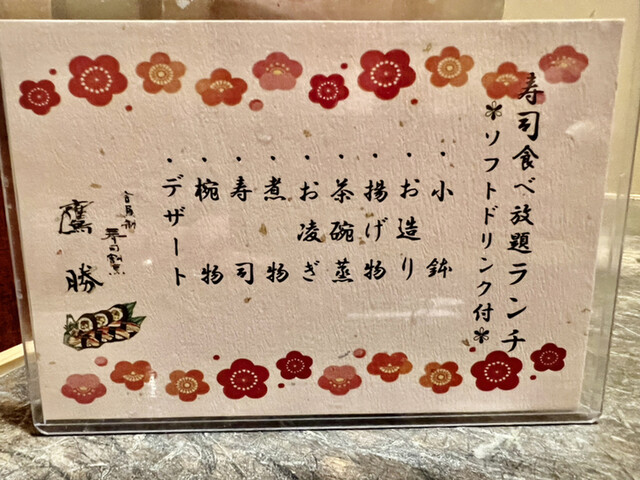 寿司食べ放題ランチ
＊ソフトドリンク付＊
・小鉢
・お造り
・揚げ物
・茶碗蒸
・お凌ぎ
・煮物
・寿司
・椀物
・デザート
会員制
寿司割烹
鷹勝